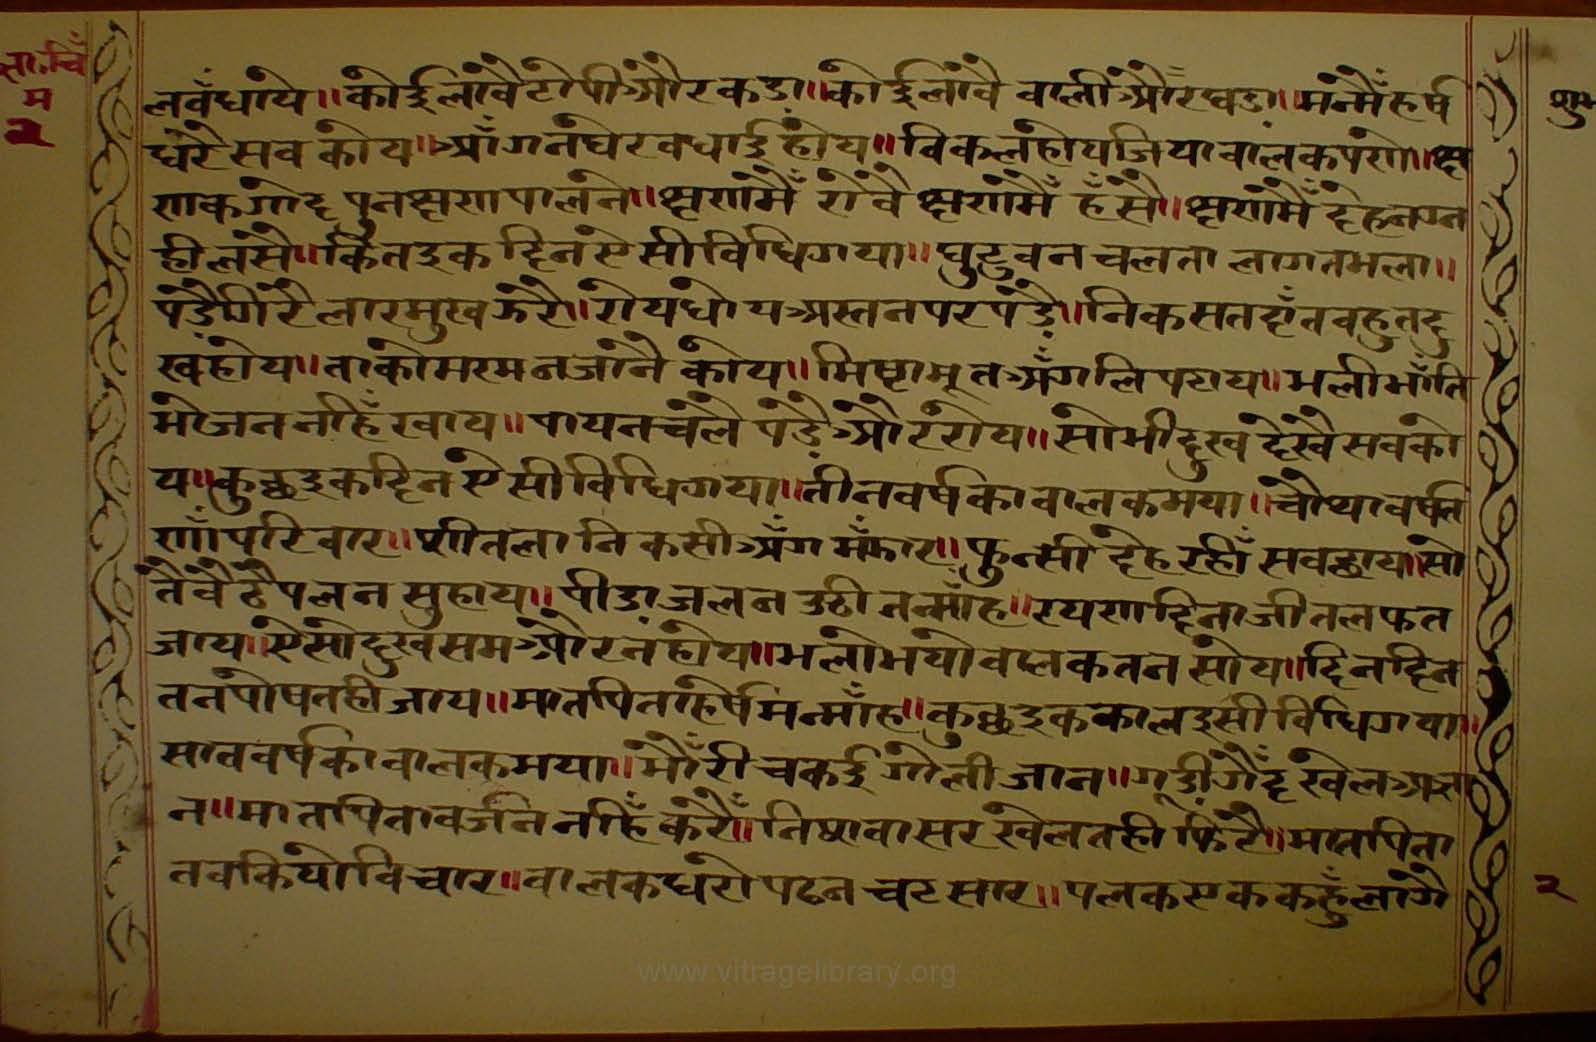 लवँधाये॥कोईलावैटोपीऔरकडा॥कोईलावै वालीऔरखडा॥मनमैँहर्ष
धरे सव कोय॥आँगनघेरवधाईहोय॥विकलहोयजियावालकपणे॥क्ष
णकगोद पुनक्षणपालने॥क्षणमैँ रोवै क्षणमैँ हँसै॥क्षणमैँ देहनगन
हीलसै॥कितइक दिनऐसीविधिगया॥घुटुवन चलता लागतभला॥
पडैगिरै लारमुखझरै॥रोयधोयअस्तनपरपडै॥निकसतदाँतवहुतदु
खहोय॥ताकोमरमनजानै कोय॥मिष्टामूतअँगलिपटाय॥भलीभाँति
भोजननहिँखाय॥पायनचलै पडैऔररोय॥सोभीदुखदेखैसवको
य॥कुछइकदिनऐसीविधिगया॥तीनवर्षकावालकभया॥चौथावर्षत
णाँपरिवार॥शीतलानिकसीअँगमँझार॥फुन्सी देहरहीँ सवछाय॥सो
तैवैठैपलनसुहाय॥पीडाजलनउठीतनमाँह॥रयणदिनाजीतलफत
जाय॥ऐसोदुखसमऔरनहोय॥भलोभयोवालकतनसोय॥दिनदिन
तनपोषतहीजाय॥मातपिताहर्षैमनमाँह॥कुछइककालइसीविधिगया॥
सातवर्षकावालकभया॥भौँरीचकईगोलीजान॥गडीगैँदखेलअस्ना
न॥मातपितावर्जननहिँकरैँ॥निशवासरखेलतहीफिरै॥मातपिता
तवकियोविचार॥वालकधरोपढनचटसार॥पलकएककहुँलागै
म
२
२
www.vitragelibrary.org